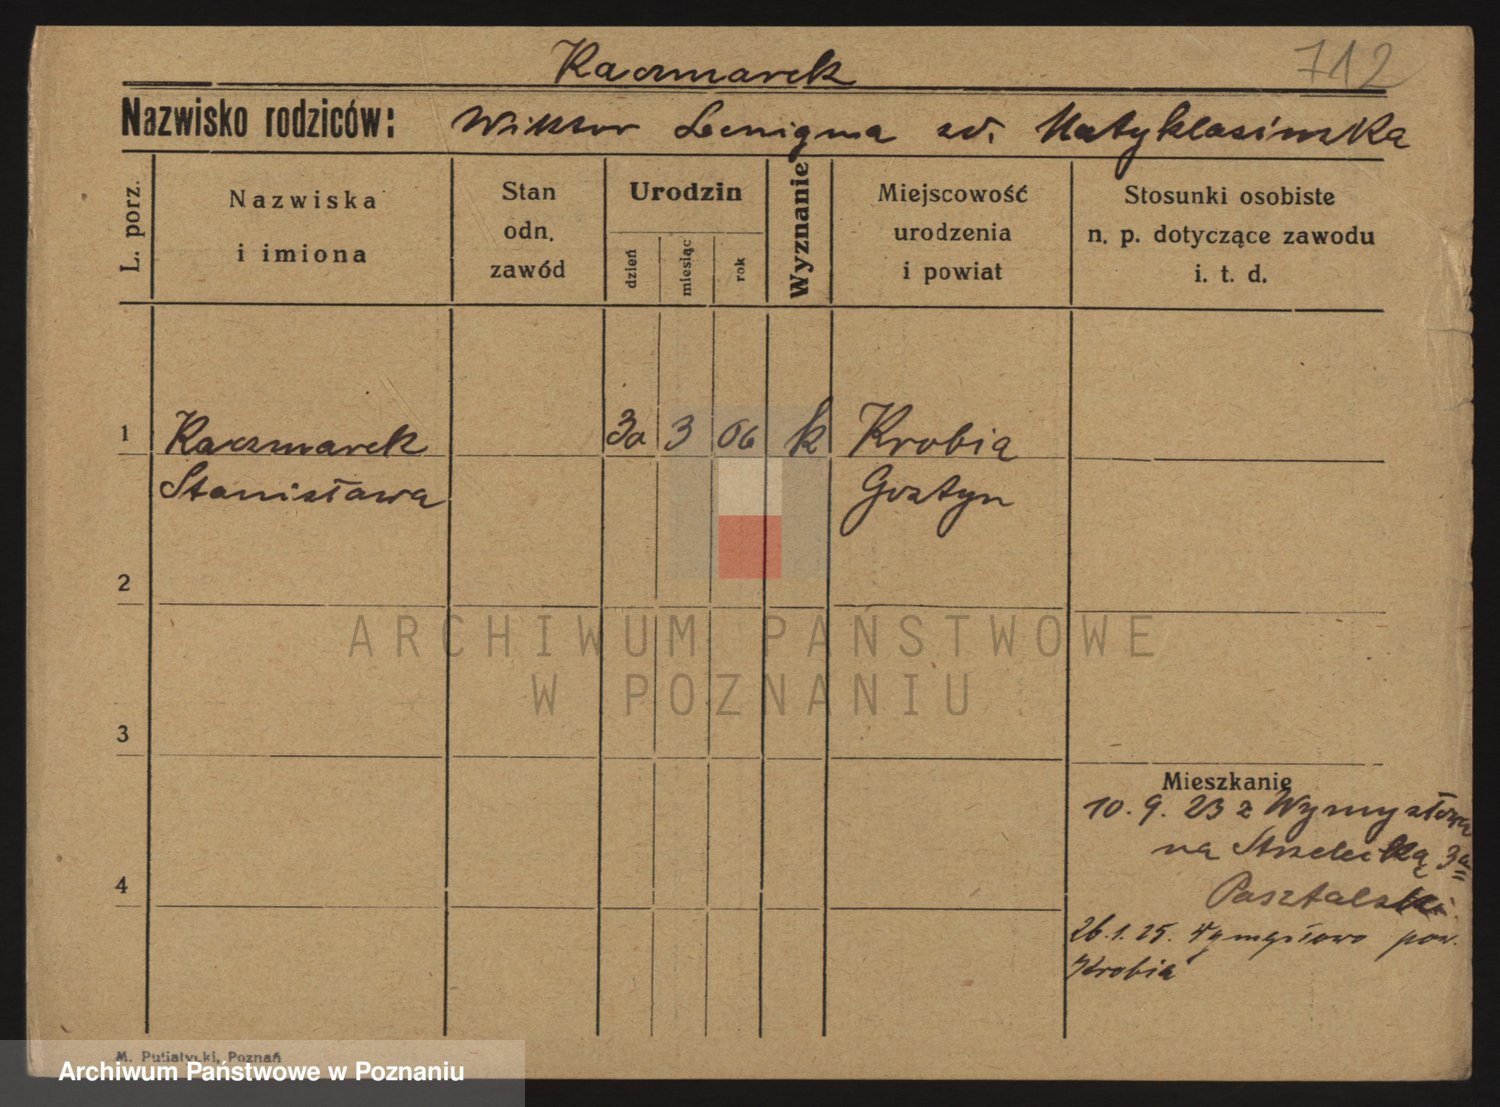 Kaczmarek
712
Nazwisko rodziców: Wiktor zd.
L. porz.
Nazwiska
i imiona
Stan
odn.
zawód
Urodzin
dzień
miesiąc
rok
Wyznanie
Miejscowość
urodzenia
i powiat
Stosunki osobiste
n. p. dotyczące zawodu
i. t. d.
1 Kaczmarek 30 3 06 k Krobia
Stanisława Gostyn
2
3
4
ARCHIWUM PAŃSTWOWE
W POZNANIU
Mieszkanie
10. 9. 23 z Wymysłowa
na Strzelecką 3a
26. 1. 25. Wymysłowo pow.
Krobia
M. Putiatycki, Poznań
Archiwum Państwowe w Poznaniu